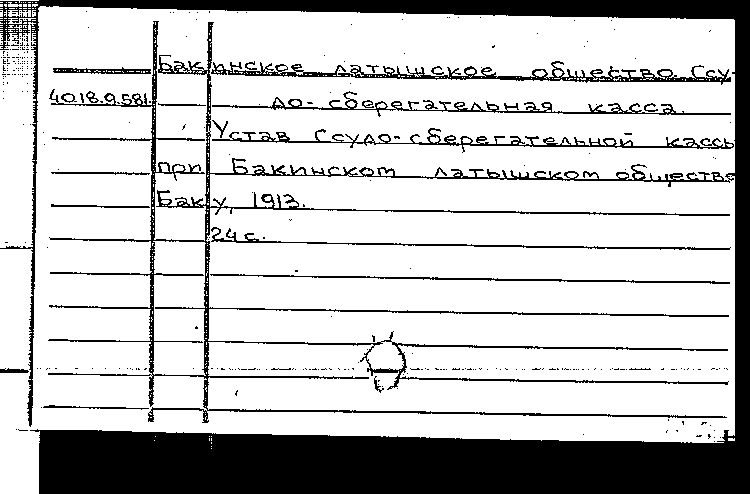 Бакинское латышское общество. Ссу-
4018.9.581 до-сберегательная касса.
Устав Ссудо-сберегательной кассы
при Бакинском латышском обществе
Баку, 1913.
24 с.